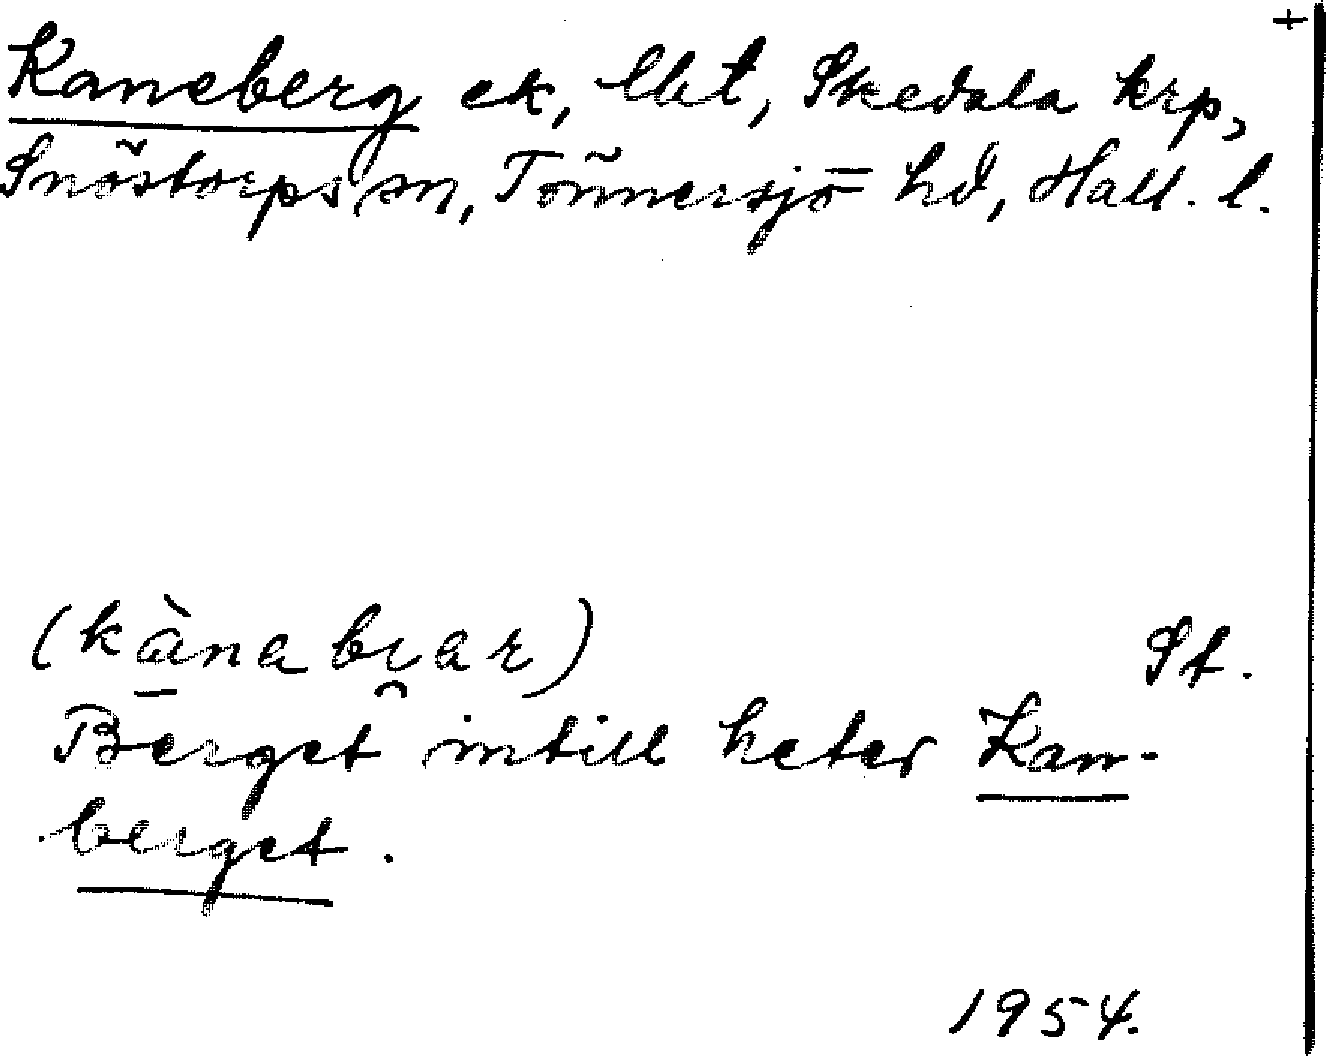 +
Kaneberg ek, lht, Skedala krp,
Snöstorps sn, Tönnersjö hd, Hall. l.
(kànabrar)
St.
Berget intill heter Kan-
berget.
1954.